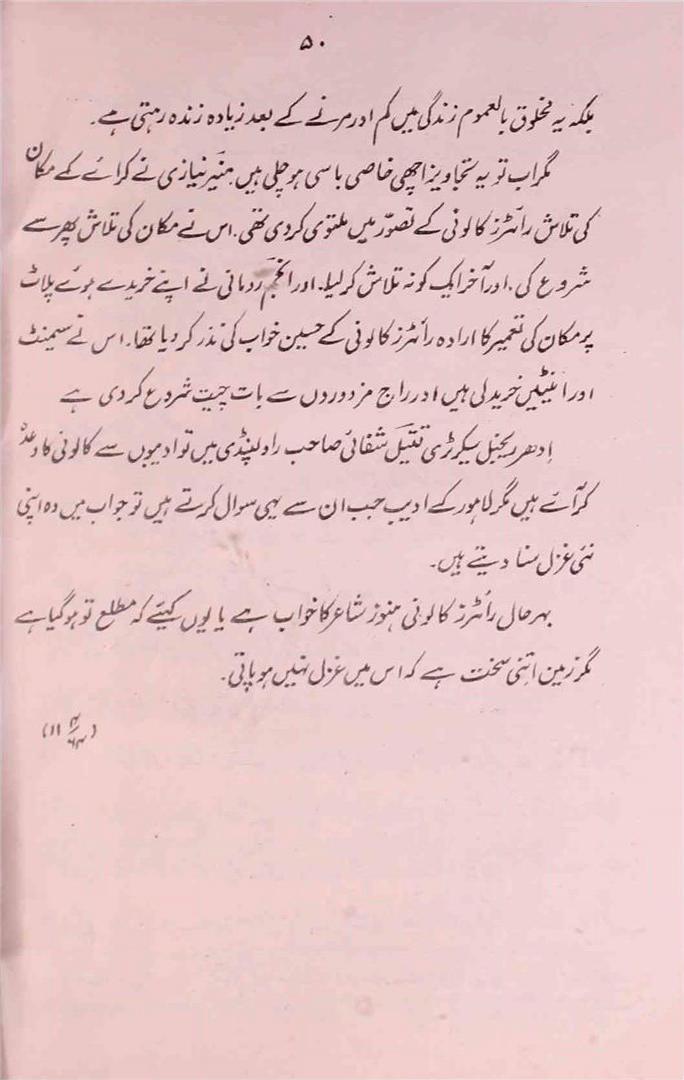 ۵۰
بلکہ یہ مخلوق بالعموم زندگی میں کم اور مرنے کے بعد زیادہ زندہ رہتی ہے۔
مگر اب تو یہ تجاویز اچھی خاصی باسی ہو چلی ہیں۔ منیر نیازی نے کرائے کے مکان
کی تلاش رائٹرز کالونی کے تصوّر میں ملتوی کردی تھی۔ اس نے مکان کی تلاش پھر سے
شروع کی، اور آخر ایک کونہ تلاش کرلیا۔ اور انجم رومانی نے اپنے خریدے ہوئے پلاٹ
پر مکان کی تعمیر کا ارادہ رائٹرز کالونی کے حسین خواب کی نذر کردیا تھا۔ اس نے سیمنٹ
اور اینٹیں خرید لی ہیں اور راج مزدوروں سے بات چیت شروع کردی ہے
اِدھر ریجنل سیکرٹری قتیل شفائی صاحب راولپنڈی میں تو ادیبوں سے کالونی کا وعدہ
کر آئے ہیں مگر لاہور کے ادیب جب ان سے یہی سوال کرتے ہیں تو جواب میں وہ اپنی
نئی غزل سنا دیتے ہیں۔
بہرحال رائٹرز کالونی ہنوز شاعر کا خواب ہے یا یوں کہیئے کہ مطلع تو ہوگیا ہے
مگر زمین اتنی سخت ہے کہ اس میں غزل نہیں ہو پاتی۔